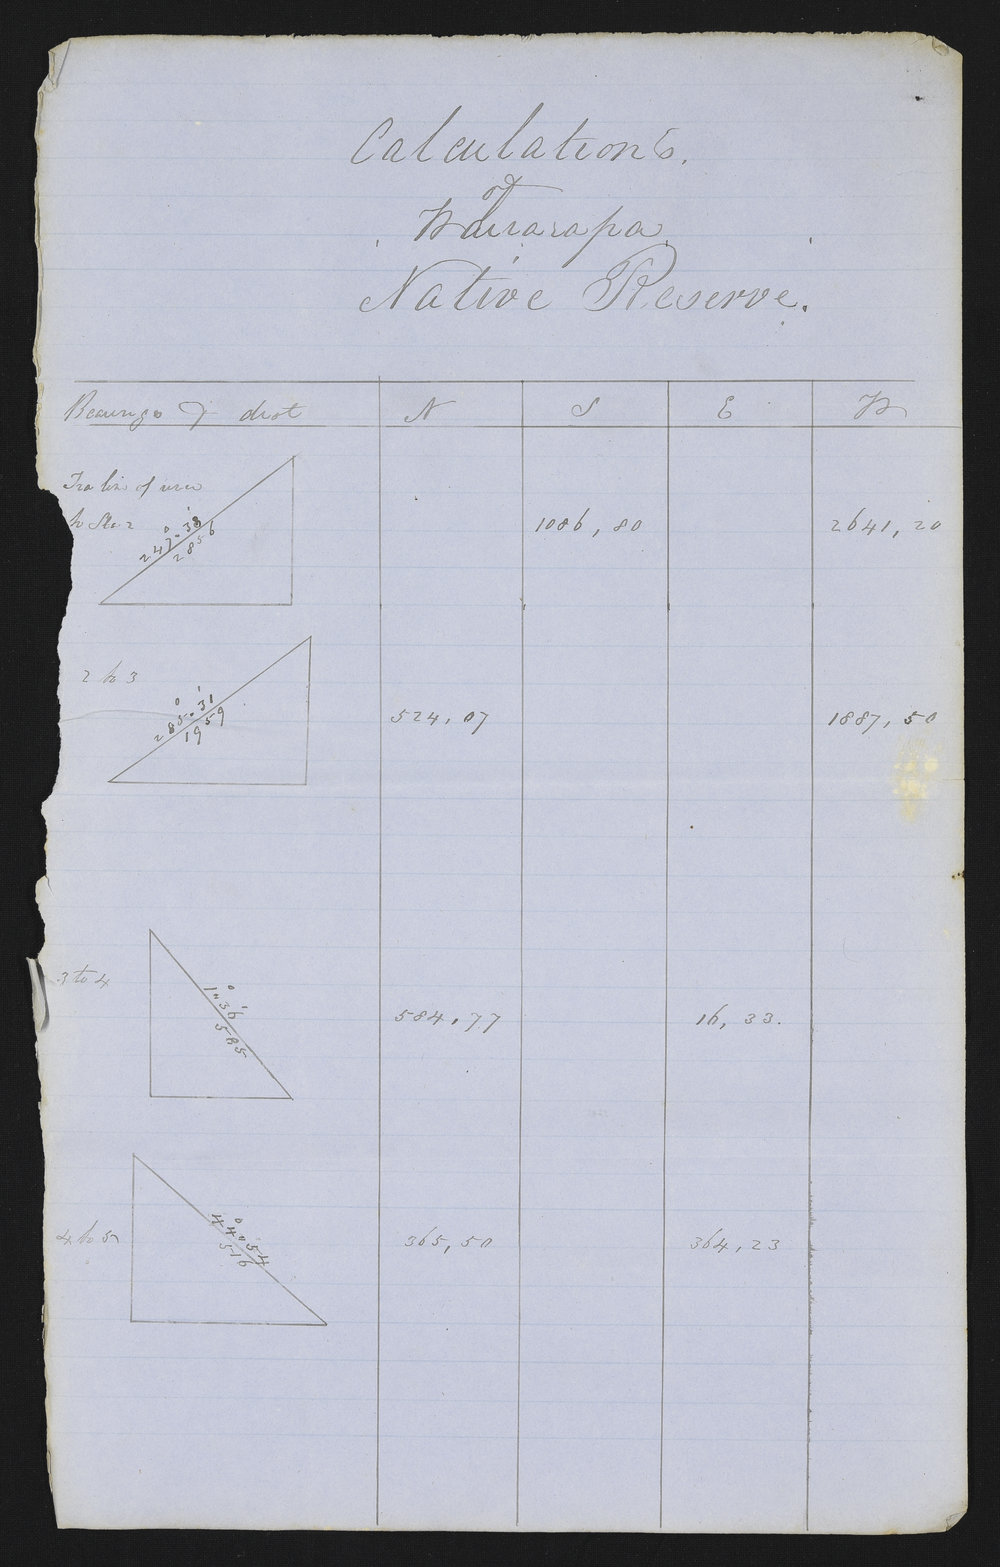 Calculations.
of
Wairarapa
Native Reserve.
Bearings & dist N S E W
Tra line of
to Sta 2 247° 38' 2856 1086, 80 2641, 20
2 to 3 285° 31' 1959 524, 07 1887, 50
3 to 4 1° 36' 585 584, 77 16, 33.
4 to 5 44° 54' 516 365, 50 364, 23